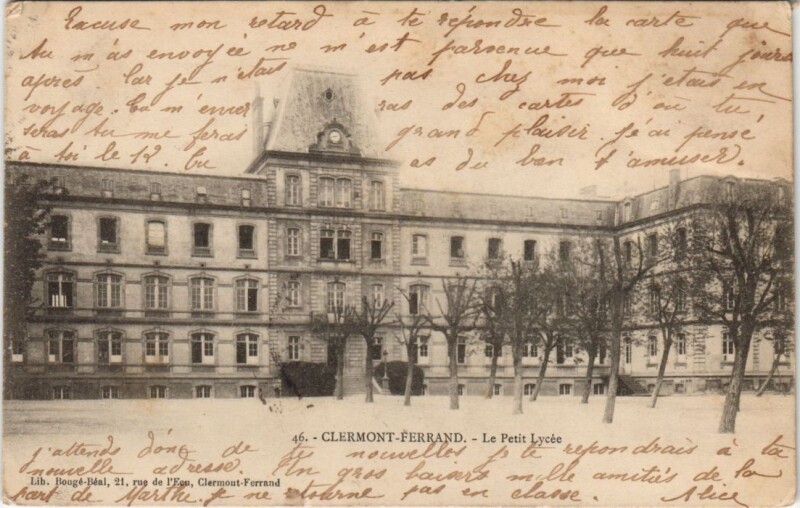 Excuse mon retard à te répondre la carte que
tu m'as envoyée ne m'est parvenue que huit jours
après car je n'étais pas chez moi j'étais en
voyage. Tu m'enverras des cartes d'où tu
seras tu me feras grand plaisir. j'ai pensé
à toi le 12. tu as du bien t'amuser.
46. - CLERMONT-FERRAND. - Le Petit Lycée
j'attends donc de te nouvelles je te repondrais à ta
nouvelle adresse. Un gros baisers mille amitiés de la
Lib. Bougé-Béal, 21, rue de l'Ecu, Clermont-Ferrand
part de Marthe. je ne retourne pas en classe. Alice